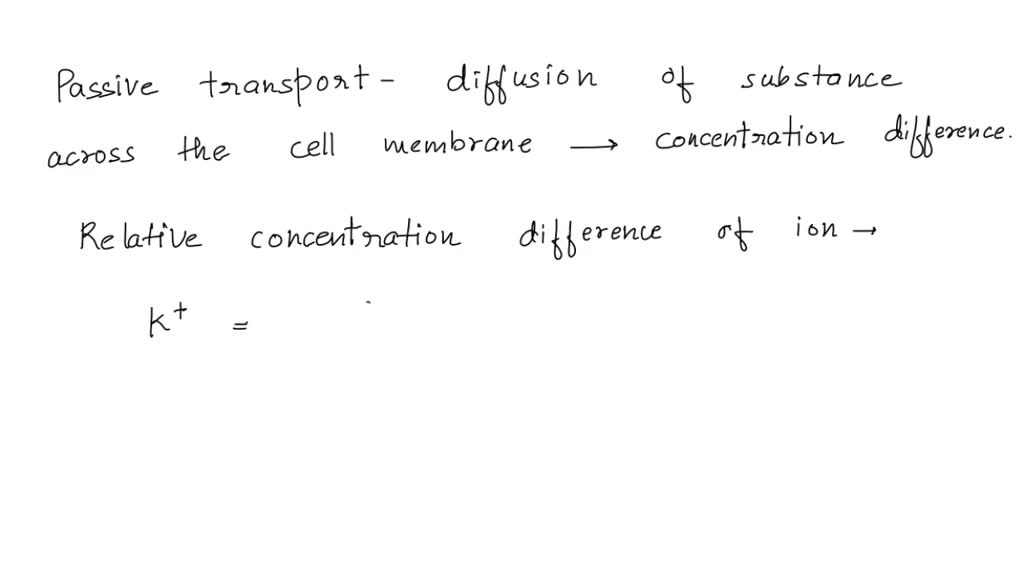 Passive transport - diffusion of substance
across the cell membrane → concentration difference.
Relative concentration difference of ion →
K⁺ =